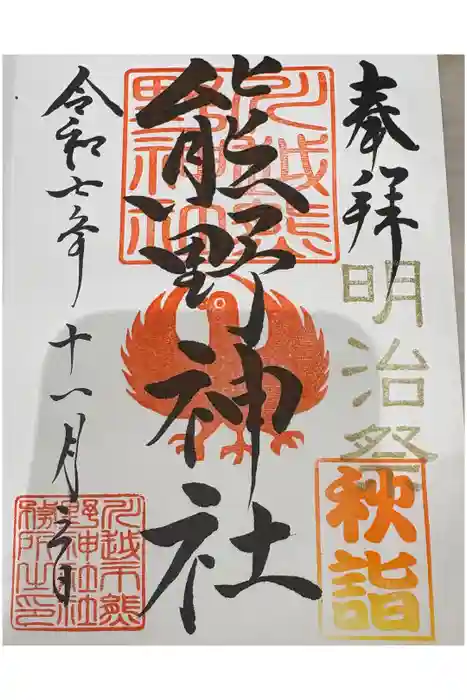 奉拝
明治祭
秋詣
川越熊
野神社
熊野神社
令和七年十一月三日
川越市熊
野神社社
務所之印